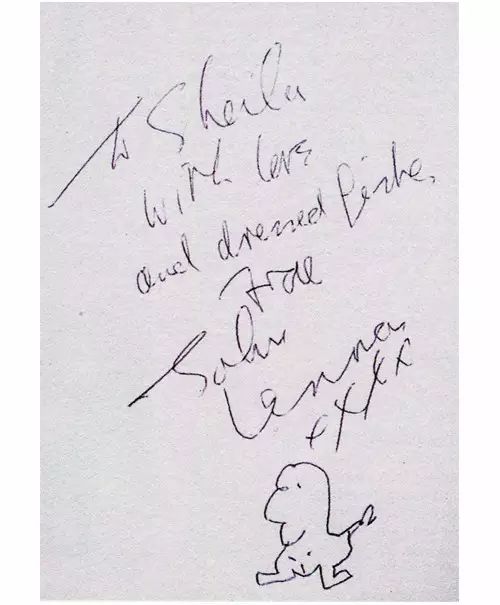 to Sheila
with love
and dressed fishe,
from
John
Lennon
xxxx